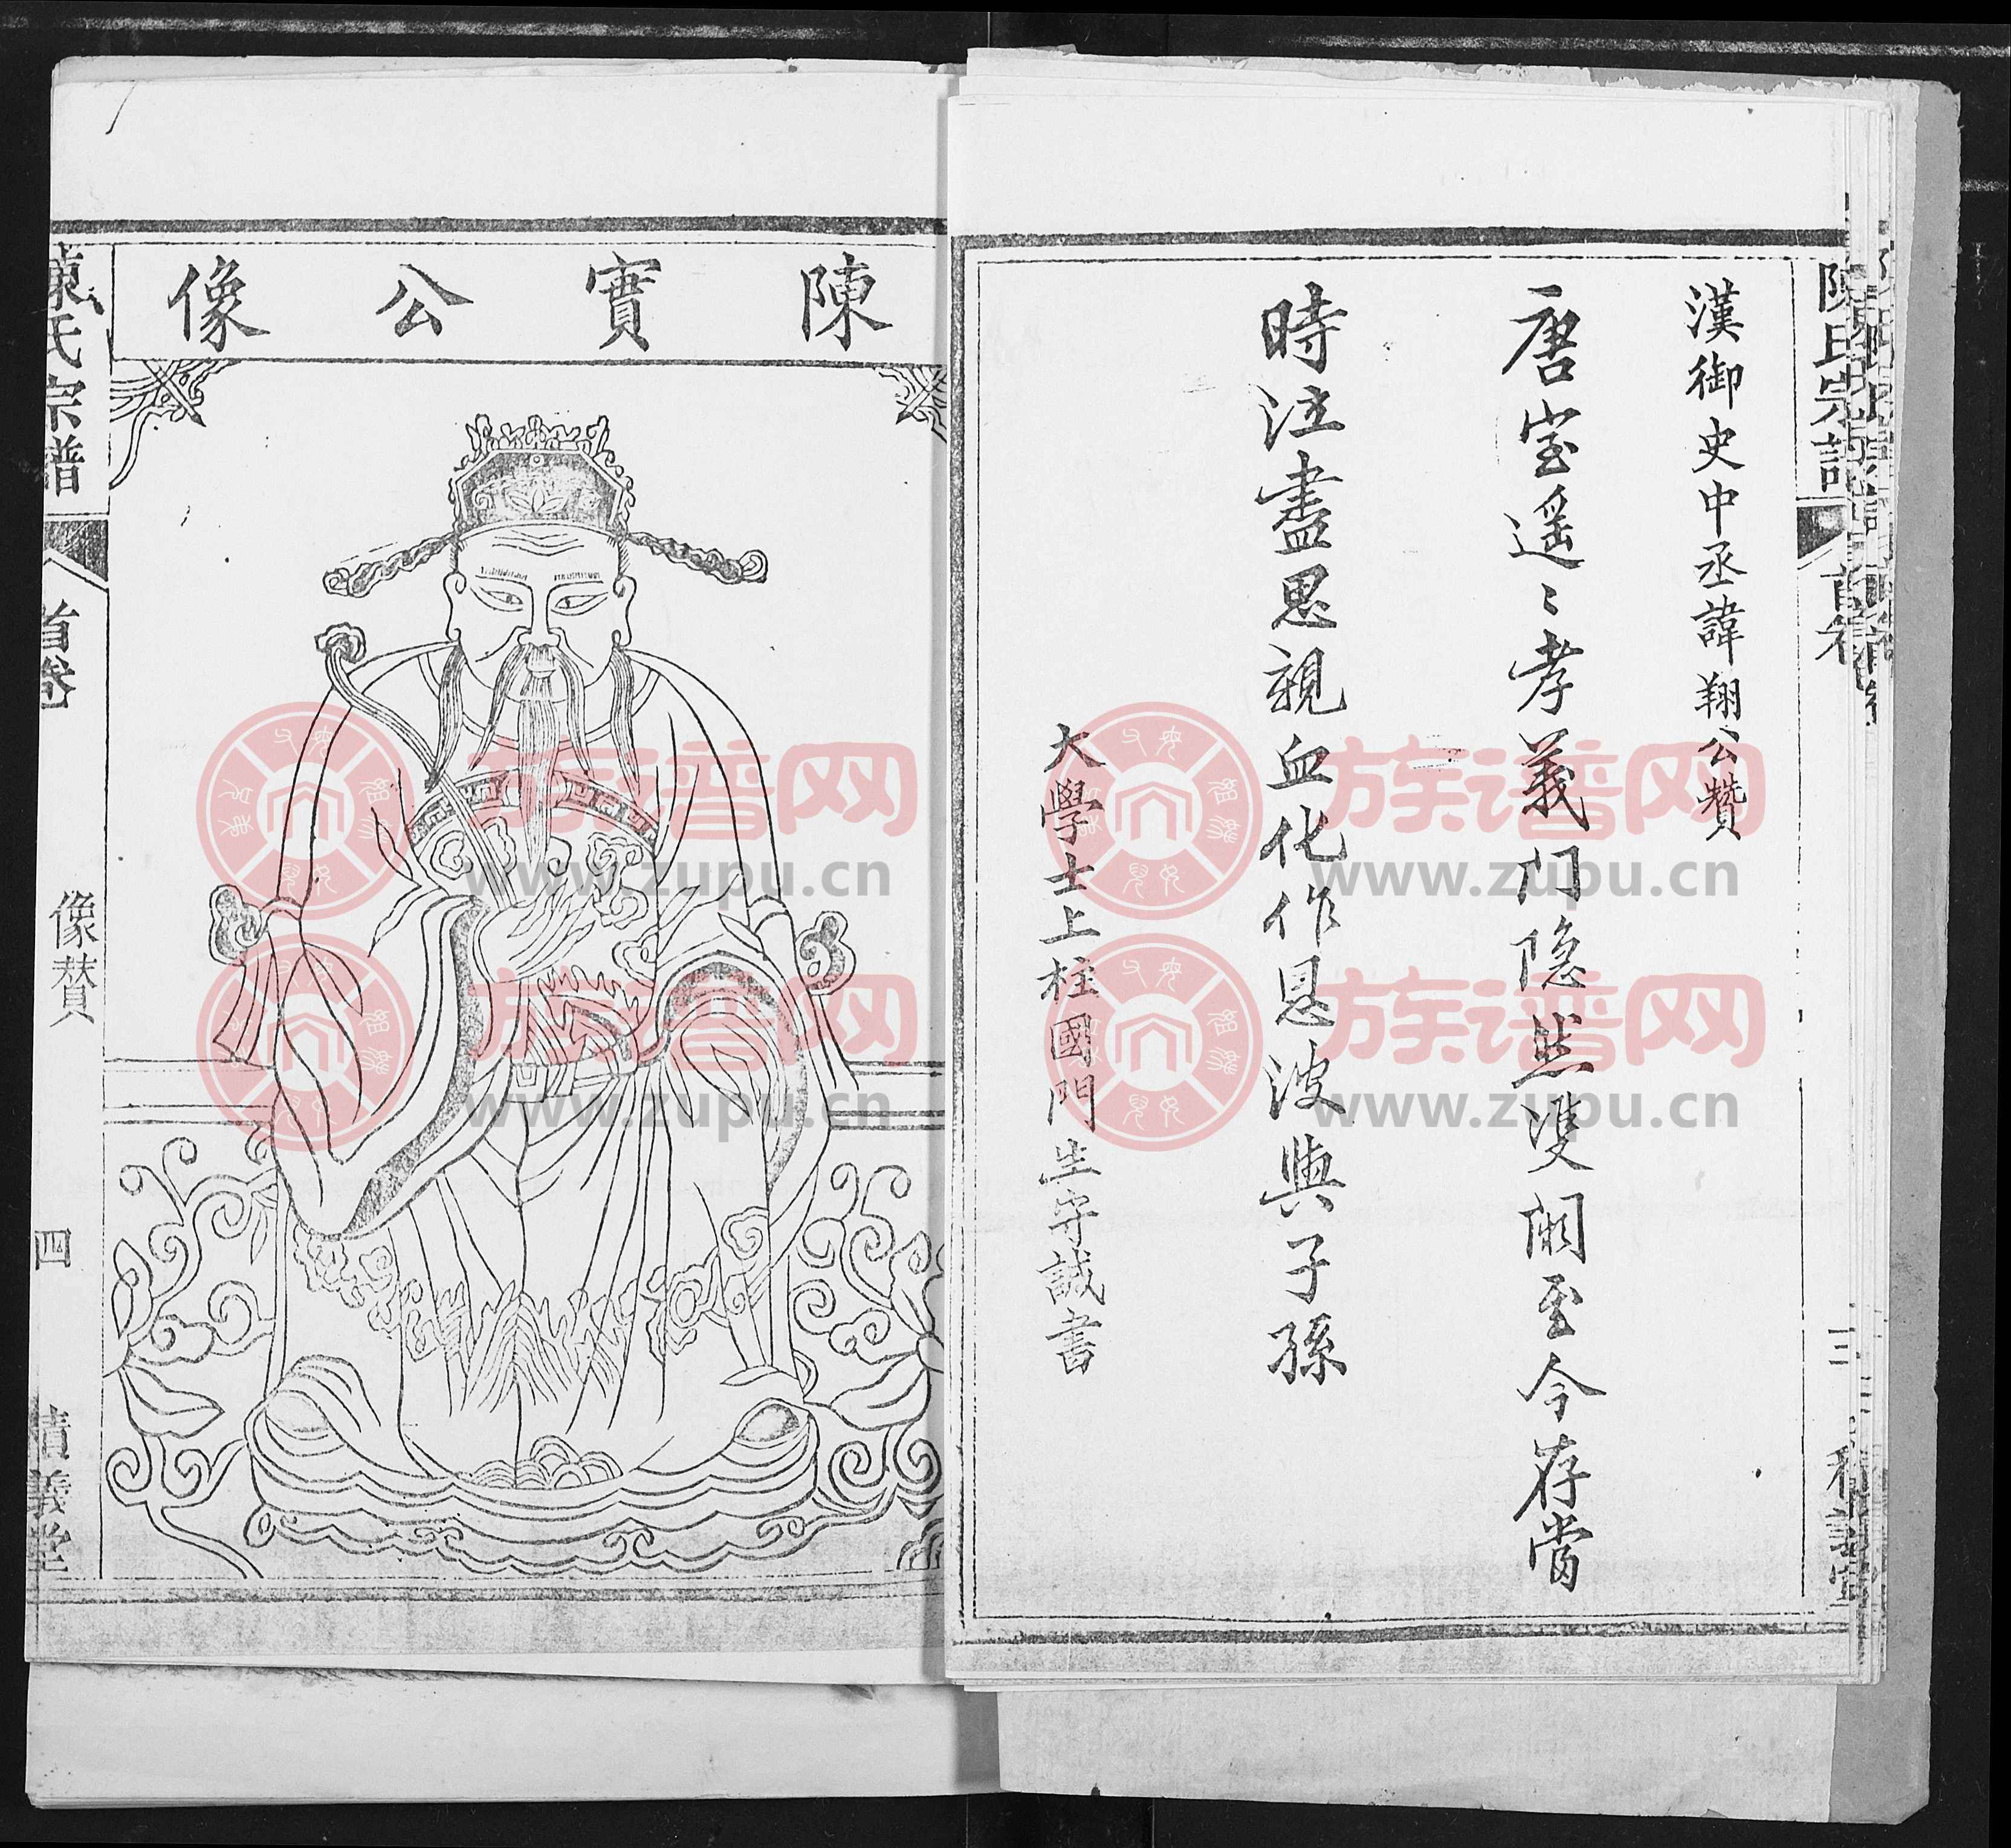 陳氏宗譜
首卷
三
漢御史中丞諱翔公贊
唐室遥〻孝義門隐然雙闕至今存當
時泣盡思親血化作恩波與子孫
大學士上柱國門生守誠書
陳實公像
陳氏宗譜
首卷
像賛
四
積義堂
族谱网
www.zupu.cn
族谱网
www.zupu.cn
族谱网
www.zupu.cn
族谱网
www.zupu.cn